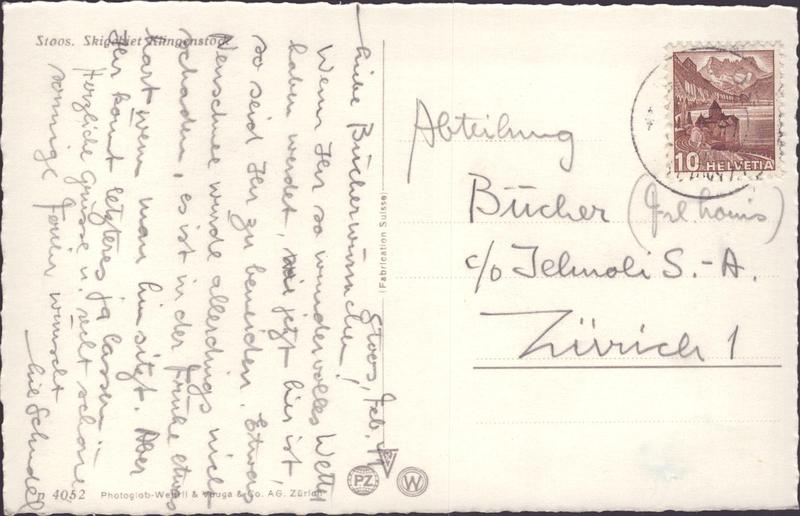 Stoos. Skigebiet Klingenstock
Stoos, Feb.
Liebe Bücherwürmchen!
Wenn Ihr so wundervolles Wetter
haben werdet, wie jetzt hier ist,
so seid Ihr zu beneiden. Etwas
Neuschnee wurde allerdings nicht
schaden, es ist in der Frühe etwas
hart wenn man hinsitzt. Aber
Ihr könnt letzteres ja lassen.
Herzliche Grüsse u. recht schöne
sonnige Ferien wünscht
(Fabrication Suisse)
Abteilung
Bücher (Frl.
c/o Jelmoli S.-A.
Zürich 1
10 HELVETIA
P 4052 Photoglob-Wehrli & Vouga & Co. AG. Zürich
PZ W